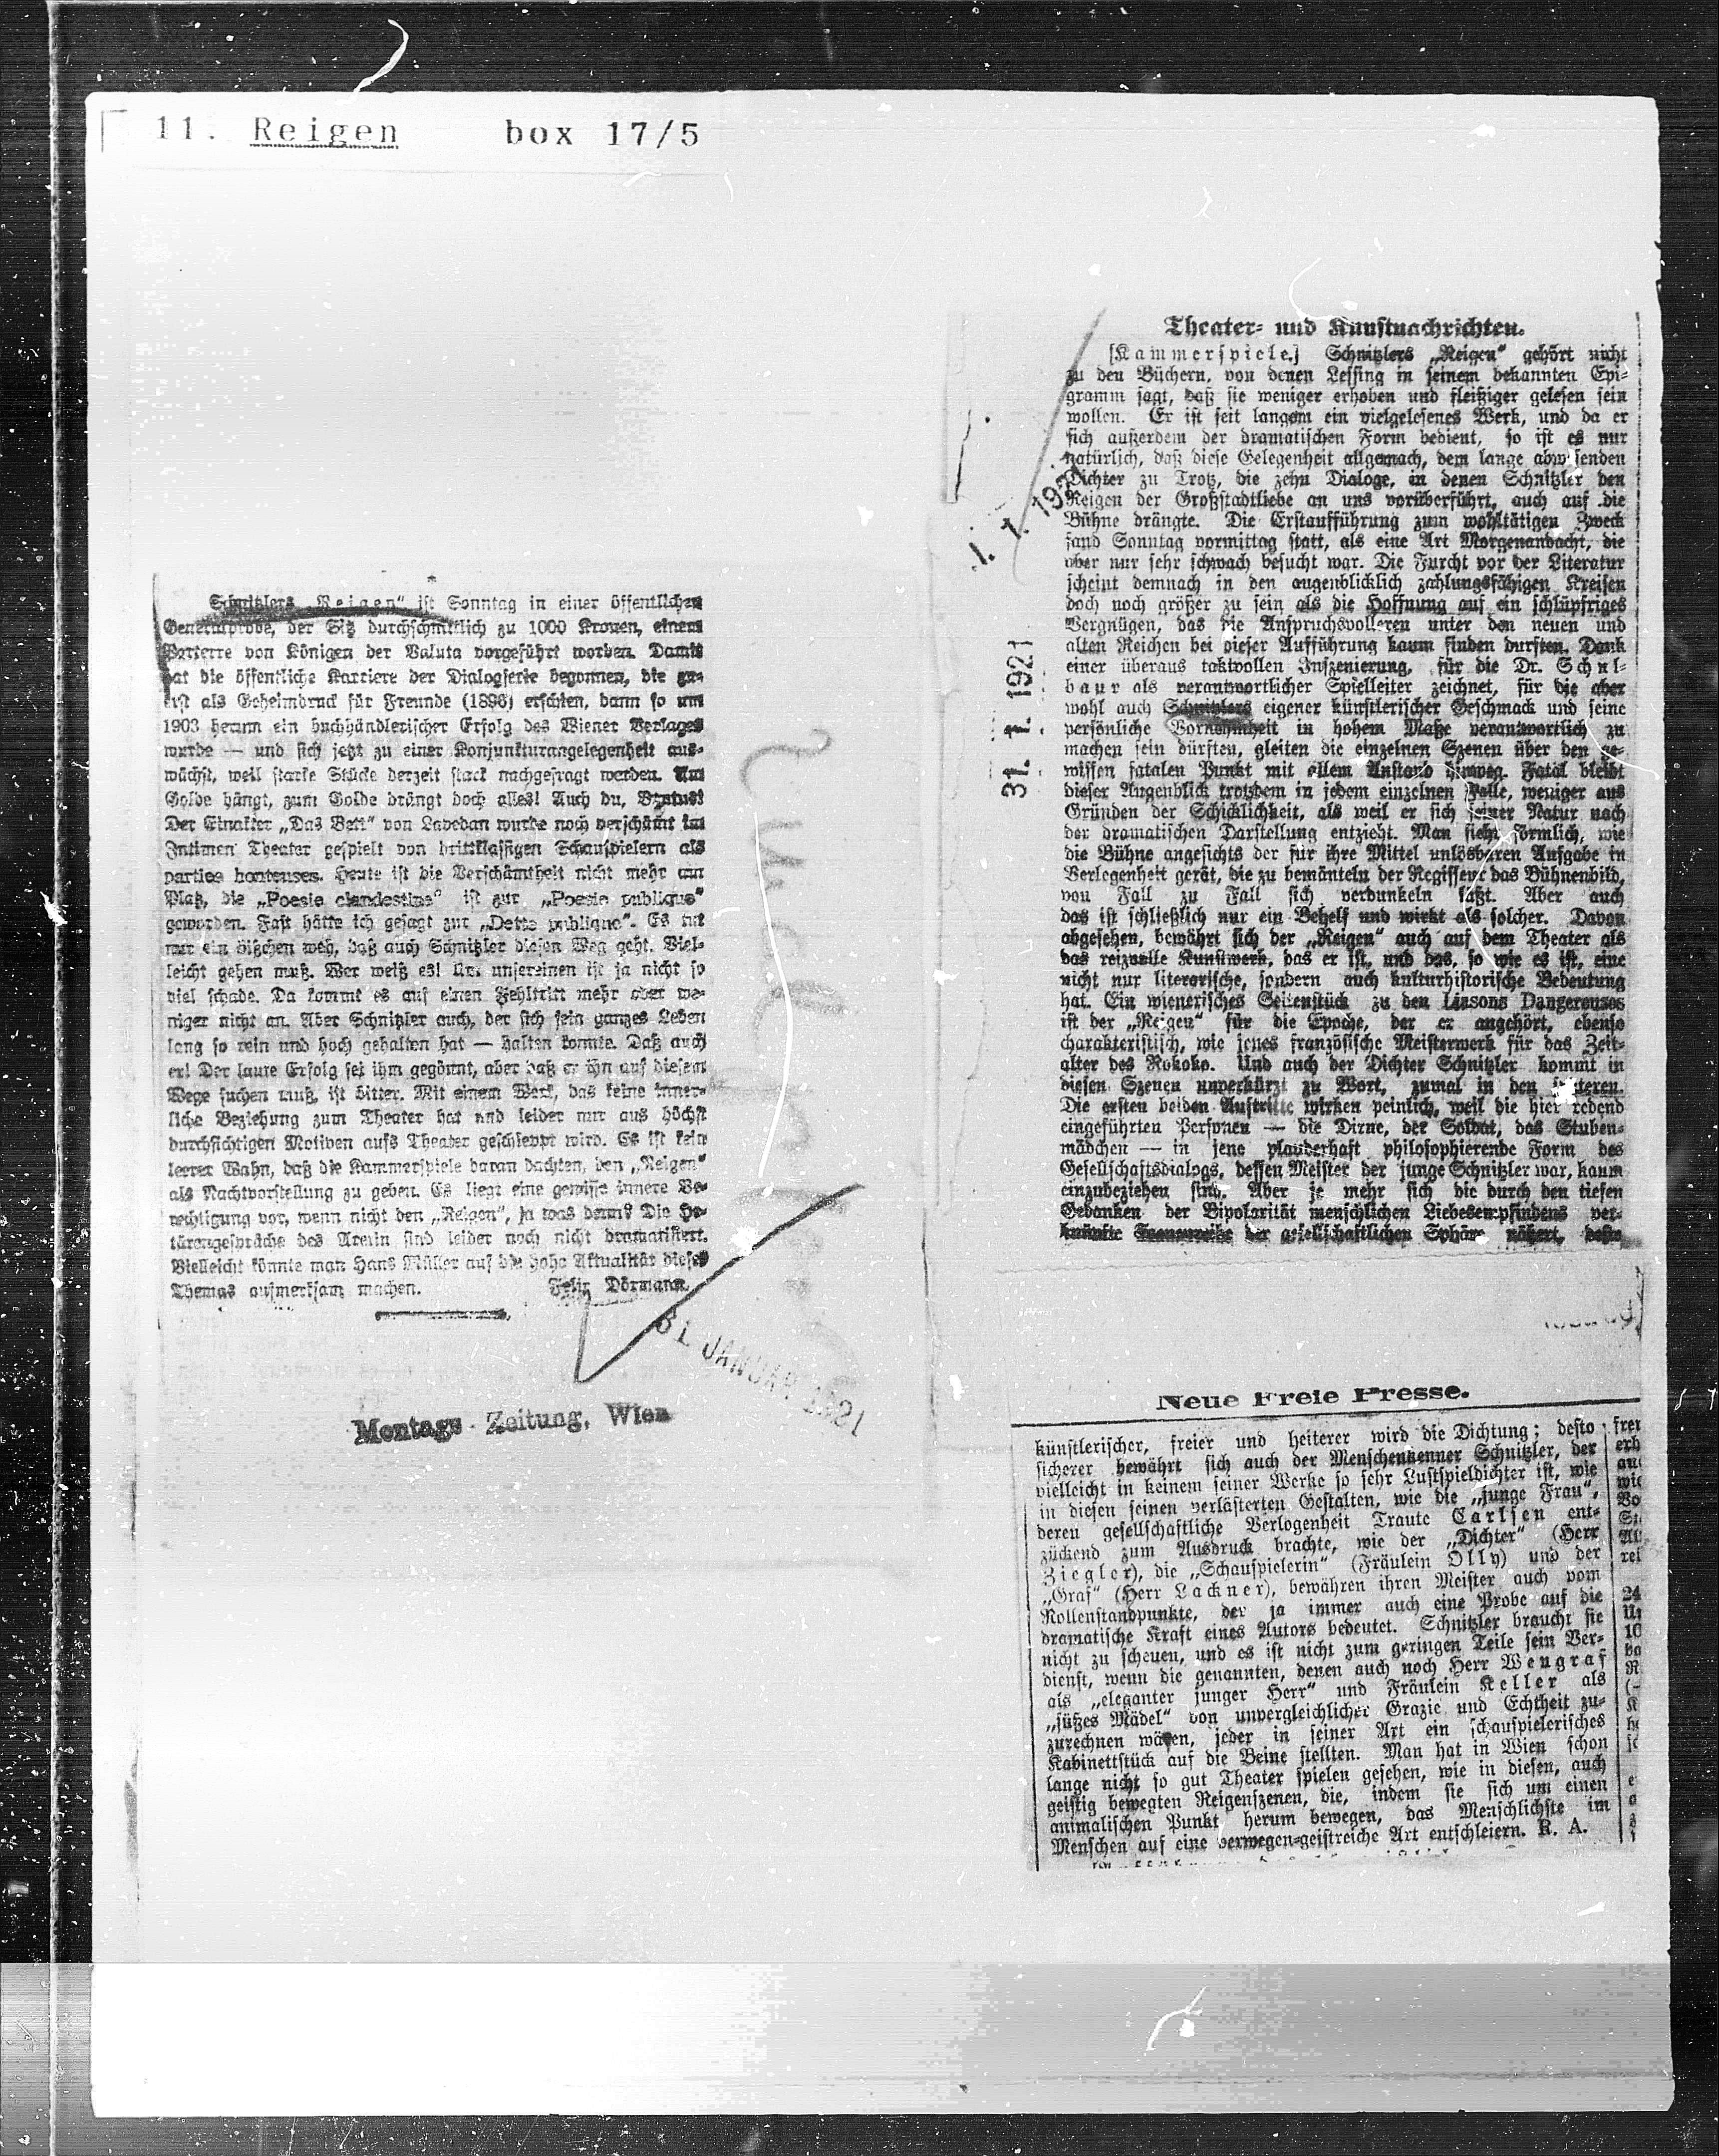 11. Reigen box 17/5
Schnitzlers „Reigen“ ist Sonntag in einer öffentlichen
Generalprobe, der Sitz durchschnittlich zu 1000 Kronen, einem
Parterre von Königen der Valuta vorgeführt worden. Damit
hat die öffentliche Karriere der Dialogserie begonnen, die zu-
erst als Geheimdruck für Freunde (1896) erschien, dann so um
1903 herum ein buchhändlerischer Erfolg des Wiener Verlages
wurde — und sich jetzt zu einer Konjunkturangelegenheit aus-
wächst, weil starke Stücke derzeit stark nachgefragt werden. Am
Golde hängt, zum Golde drängt doch alles! Auch du, Brutus!
Der Einakter „Das Bett“ von Lavedan wurde noch verschämt im
Intimen Theater gespielt von drittklassigen Schauspielern als
parties honteuses. Heute ist die Verschämtheit nicht mehr am
Platz, die „Poesie clandestine“ ist zur „Poesie publique“
geworden. Fast hätte ich gesagt zur „Dette publique“. Es tut
mir ein bißchen weh, daß auch Schnitzler diesen Weg geht. Viel-
leicht gehen muß. Wer weiß es! Um unsereinen ist ja nicht so
viel schade. Da kommt es auf einen Fehltritt mehr oder we-
niger nicht an. Aber Schnitzler auch, der sich sein ganzes Leben
lang so rein und hoch gehalten hat — halten konnte. Daß auch
er! Der laute Erfolg sei ihm gegönnt, aber daß er ihn auf diesem
Wege suchen muß, ist bitter. Mit einem Werk, das keine inner-
liche Beziehung zum Theater hat und leider nur aus höchst
durchsichtigen Motiven aufs Theater geschleppt wird. Es ist kein
leerer Wahn, daß die Kammerspiele daran dachten, den „Reigen“
als Nachtvorstellung zu geben. Es liegt eine gewisse innere Be-
rechtigung vor, wenn nicht den „Reigen“, ja was denn? Die He-
tärengespräche des Aretin sind leider noch nicht dramatisiert.
Vielleicht könnte man Hans Müller auf die hohe Aktualität dieses
Themas aufmerksam machen. Felix Dörmann.
31. JANUAR 1921
Montags-Zeitung, Wien
31. 1. 1921
Theater- und Kunstnachrichten.
[Kammerspiele.] Schnitzlers „Reigen“ gehört nicht
zu den Büchern, von denen Lessing in seinem bekannten Epi-
gramm sagt, daß sie weniger erhoben und fleißiger gelesen sein
wollen. Er ist seit langem ein vielgelesenes Werk, und da er
sich außerdem der dramatischen Form bedient, so ist es nur
natürlich, daß diese Gelegenheit allgemach, dem lange abwehrenden
Dichter zu Trotz, die zehn Dialoge, in denen Schnitzler den
Reigen der Großstadtliebe an uns vorüberführt, auch auf die
Bühne drängte. Die Erstaufführung zum wohltätigen Zweck
fand Sonntag vormittag statt, als eine Art Morgenandacht, die
aber nur sehr schwach besucht war. Die Furcht vor der Literatur
scheint demnach in den augenblicklich zahlungsfähigen Kreisen
doch noch größer zu sein als die Hoffnung auf ein schlüpfriges
Vergnügen, das die Anspruchsvolleren unter den neuen und
alten Reichen bei dieser Aufführung kaum finden durften. Dank
einer überaus taktvollen Inszenierung, für die Dr. Schul-
baur als verantwortlicher Spielleiter zeichnet, für die aber
wohl auch Schnitzlers eigener künstlerischer Geschmack und seine
persönliche Vornehmheit in hohem Maße verantwortlich zu
machen sein dürften, gleiten die einzelnen Szenen über den ge-
wissen fatalen Punkt mit allem Anstand hinweg. Fatal bleibt
dieser Augenblick trotzdem in jedem einzelnen Falle, weniger aus
Gründen der Schicklichkeit, als weil er sich seiner Natur nach
der dramatischen Darstellung entzieht. Man sieht förmlich, wie
die Bühne angesichts der für ihre Mittel unlösbaren Aufgabe in
Verlegenheit gerät, die zu bemänteln der Regisseur das Bühnenbild,
von Fall zu Fall sich verdunkeln läßt. Aber auch
das ist schließlich nur ein Behelf und wirkt als solcher. Davon
abgesehen, bewährt sich der „Reigen“ auch auf dem Theater als
das reizvolle Kunstwerk, das er ist, und das, so wie es ist, eine
nicht nur literarische, sondern auch kulturhistorische Bedeutung
hat. Ein wienerisches Seitenstück zu den Liasons Dangereuses
ist der „Reigen“ für die Epoche, der er angehört, ebenso
charakteristisch, wie jenes französische Meisterwerk für das Zeit-
alter des Rokoko. Und auch der Dichter Schnitzler kommt in
diesen Szenen unverkürzt zu Wort, zumal in den späteren.
Die ersten beiden Auftritte wirken peinlich, weil die hier redend
eingeführten Personen — die Dirne, der Soldat, das Stuben-
mädchen — in jene plauderhaft philosophierende Form des
Gesellschaftsdialogs, dessen Meister der junge Schnitzler war, kaum
einzubeziehen sind. Aber je mehr sich die durch den tiefen
Gedanken der Bipolarität menschlichen Liebesempfindens ver-
knüpfte Szenenreihe der gesellschaftlichen Sphäre nähert, desto
Neue Freie Presse.
künstlerischer, freier und heiterer wird die Dichtung; desto
sicherer bewährt sich auch der Menschenkenner Schnitzler, der
vielleicht in keinem seiner Werke so sehr Lustspieldichter ist, wie
in diesen seinen verlästerten Gestalten, wie die „junge Frau“,
deren gesellschaftliche Verlogenheit Traute Carlsen ent-
zückend zum Ausdruck brachte, wie der „Dichter“ (Herr
Ziegler), die „Schauspielerin“ (Fräulein Olly) und der
„Graf“ (Herr Lackner), bewähren ihren Meister auch vom
Rollenstandpunkte, der ja immer auch eine Probe auf die
dramatische Kraft eines Autors bedeutet. Schnitzler braucht sie
nicht zu scheuen, und es ist nicht zum geringen Teile sein Ver-
dienst, wenn die genannten, denen auch noch Herr Wengraf
als „eleganter junger Herr“ und Fräulein Keller als
„süßes Mädel“ von unvergleichlicher Grazie und Echtheit zu-
zurechnen wären, jeder in seiner Art ein schauspielerisches
Kabinettstück auf die Beine stellten. Man hat in Wien schon
lange nicht so gut Theater spielen gesehen, wie in diesen, auch
geistig bewegten Reigenszenen, die, indem sie sich um einen
animalischen Punkt herum bewegen, das Menschlichste im
Menschen auf eine verwegen-geistreiche Art entschleiern. R. A.